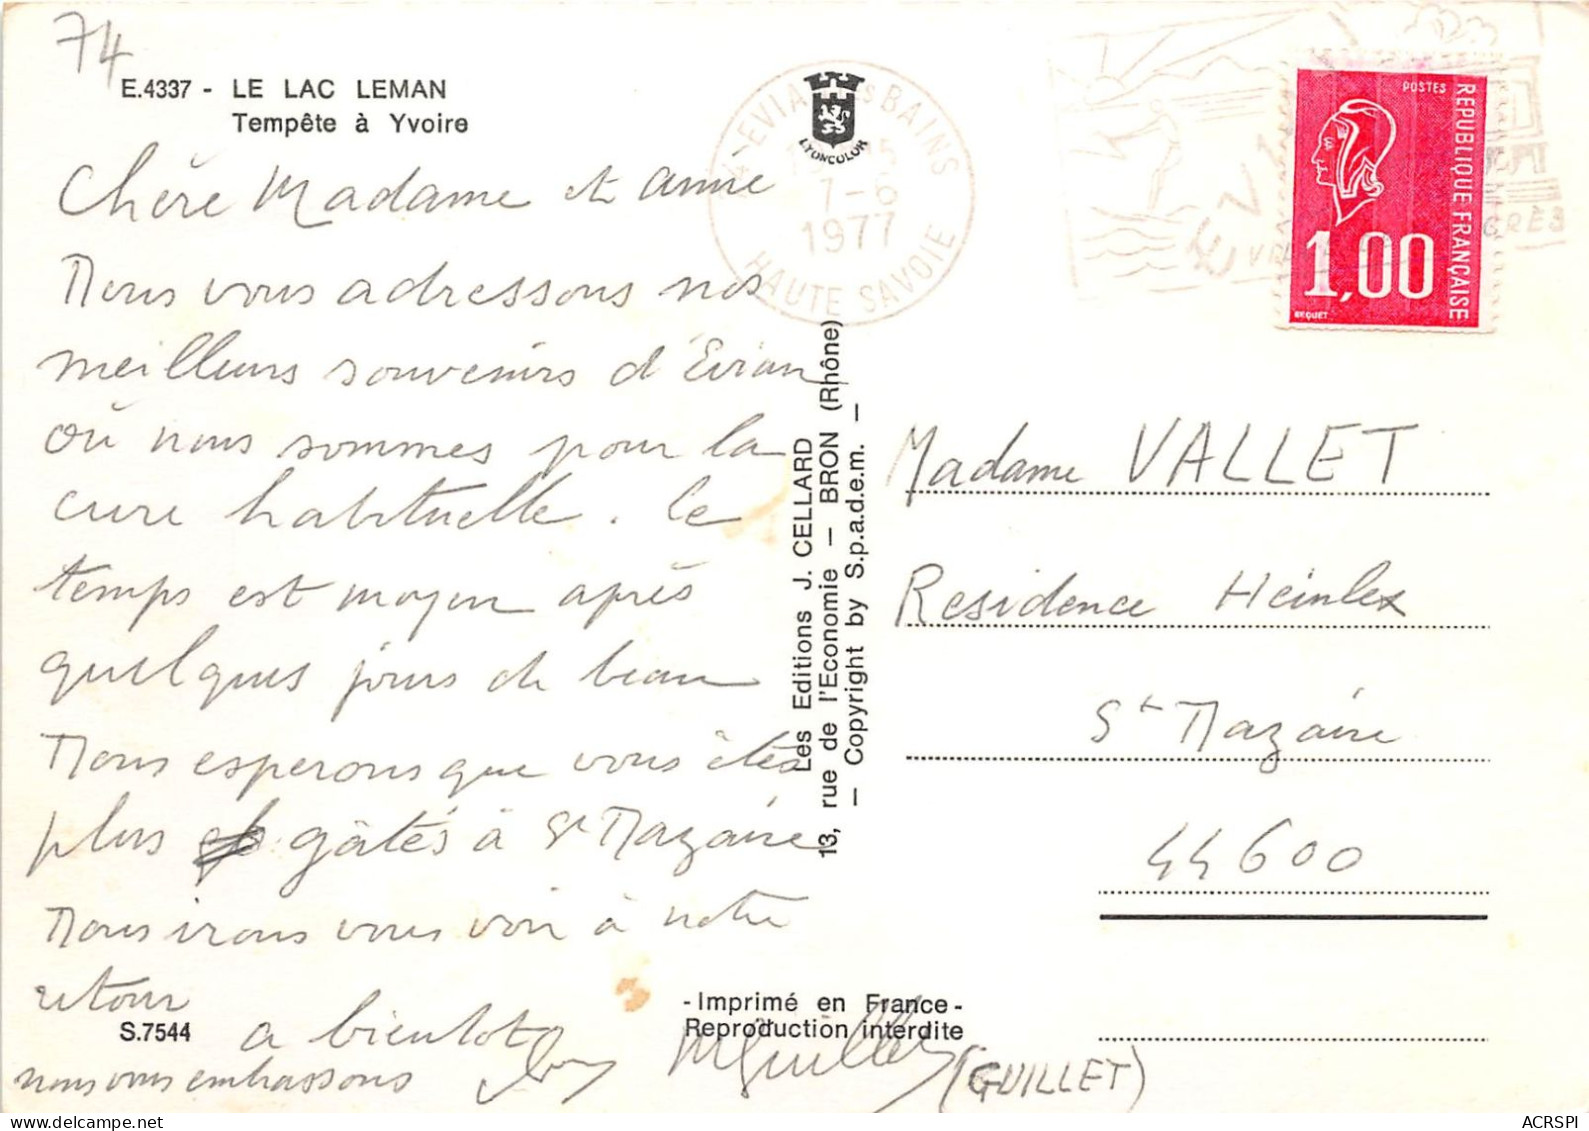 74
E.4337 - LE LAC LEMAN
Tempête à Yvoire
Chère Madame et Annie
Nous vous adressons nos
meilleurs souvenirs d'Evian
où nous sommes pour la
cure habituelle. Le
temps est moyen après
quelques jours de beau
Nous esperons que vous êtes
plus gâtés à St Nazaire
Nous irons vous voir à notre
retour
S.7544
a bientot
nous vous embrassons
MGuillet
(GUILLET)
LYONCOLOR
EVIAN LES BAINS
7-6
1977
HAUTE SAVOIE
Les Editions J. CELLARD
13, rue de l'Economie - BRON (Rhône)
- Copyright by S.p.a.d.e.m. -
- Imprimé en France -
Reproduction interdite
EVIAN
POSTES
REPUBLIQUE FRANÇAISE
1,00
BEQUET
Madame VALLET
Residence Heinlex
St Nazaire
44600
delcampe.net
ACRSPI